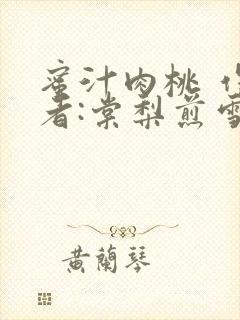 蜜汁肉桃 作
者:棠梨煎雪
黄蘭琴